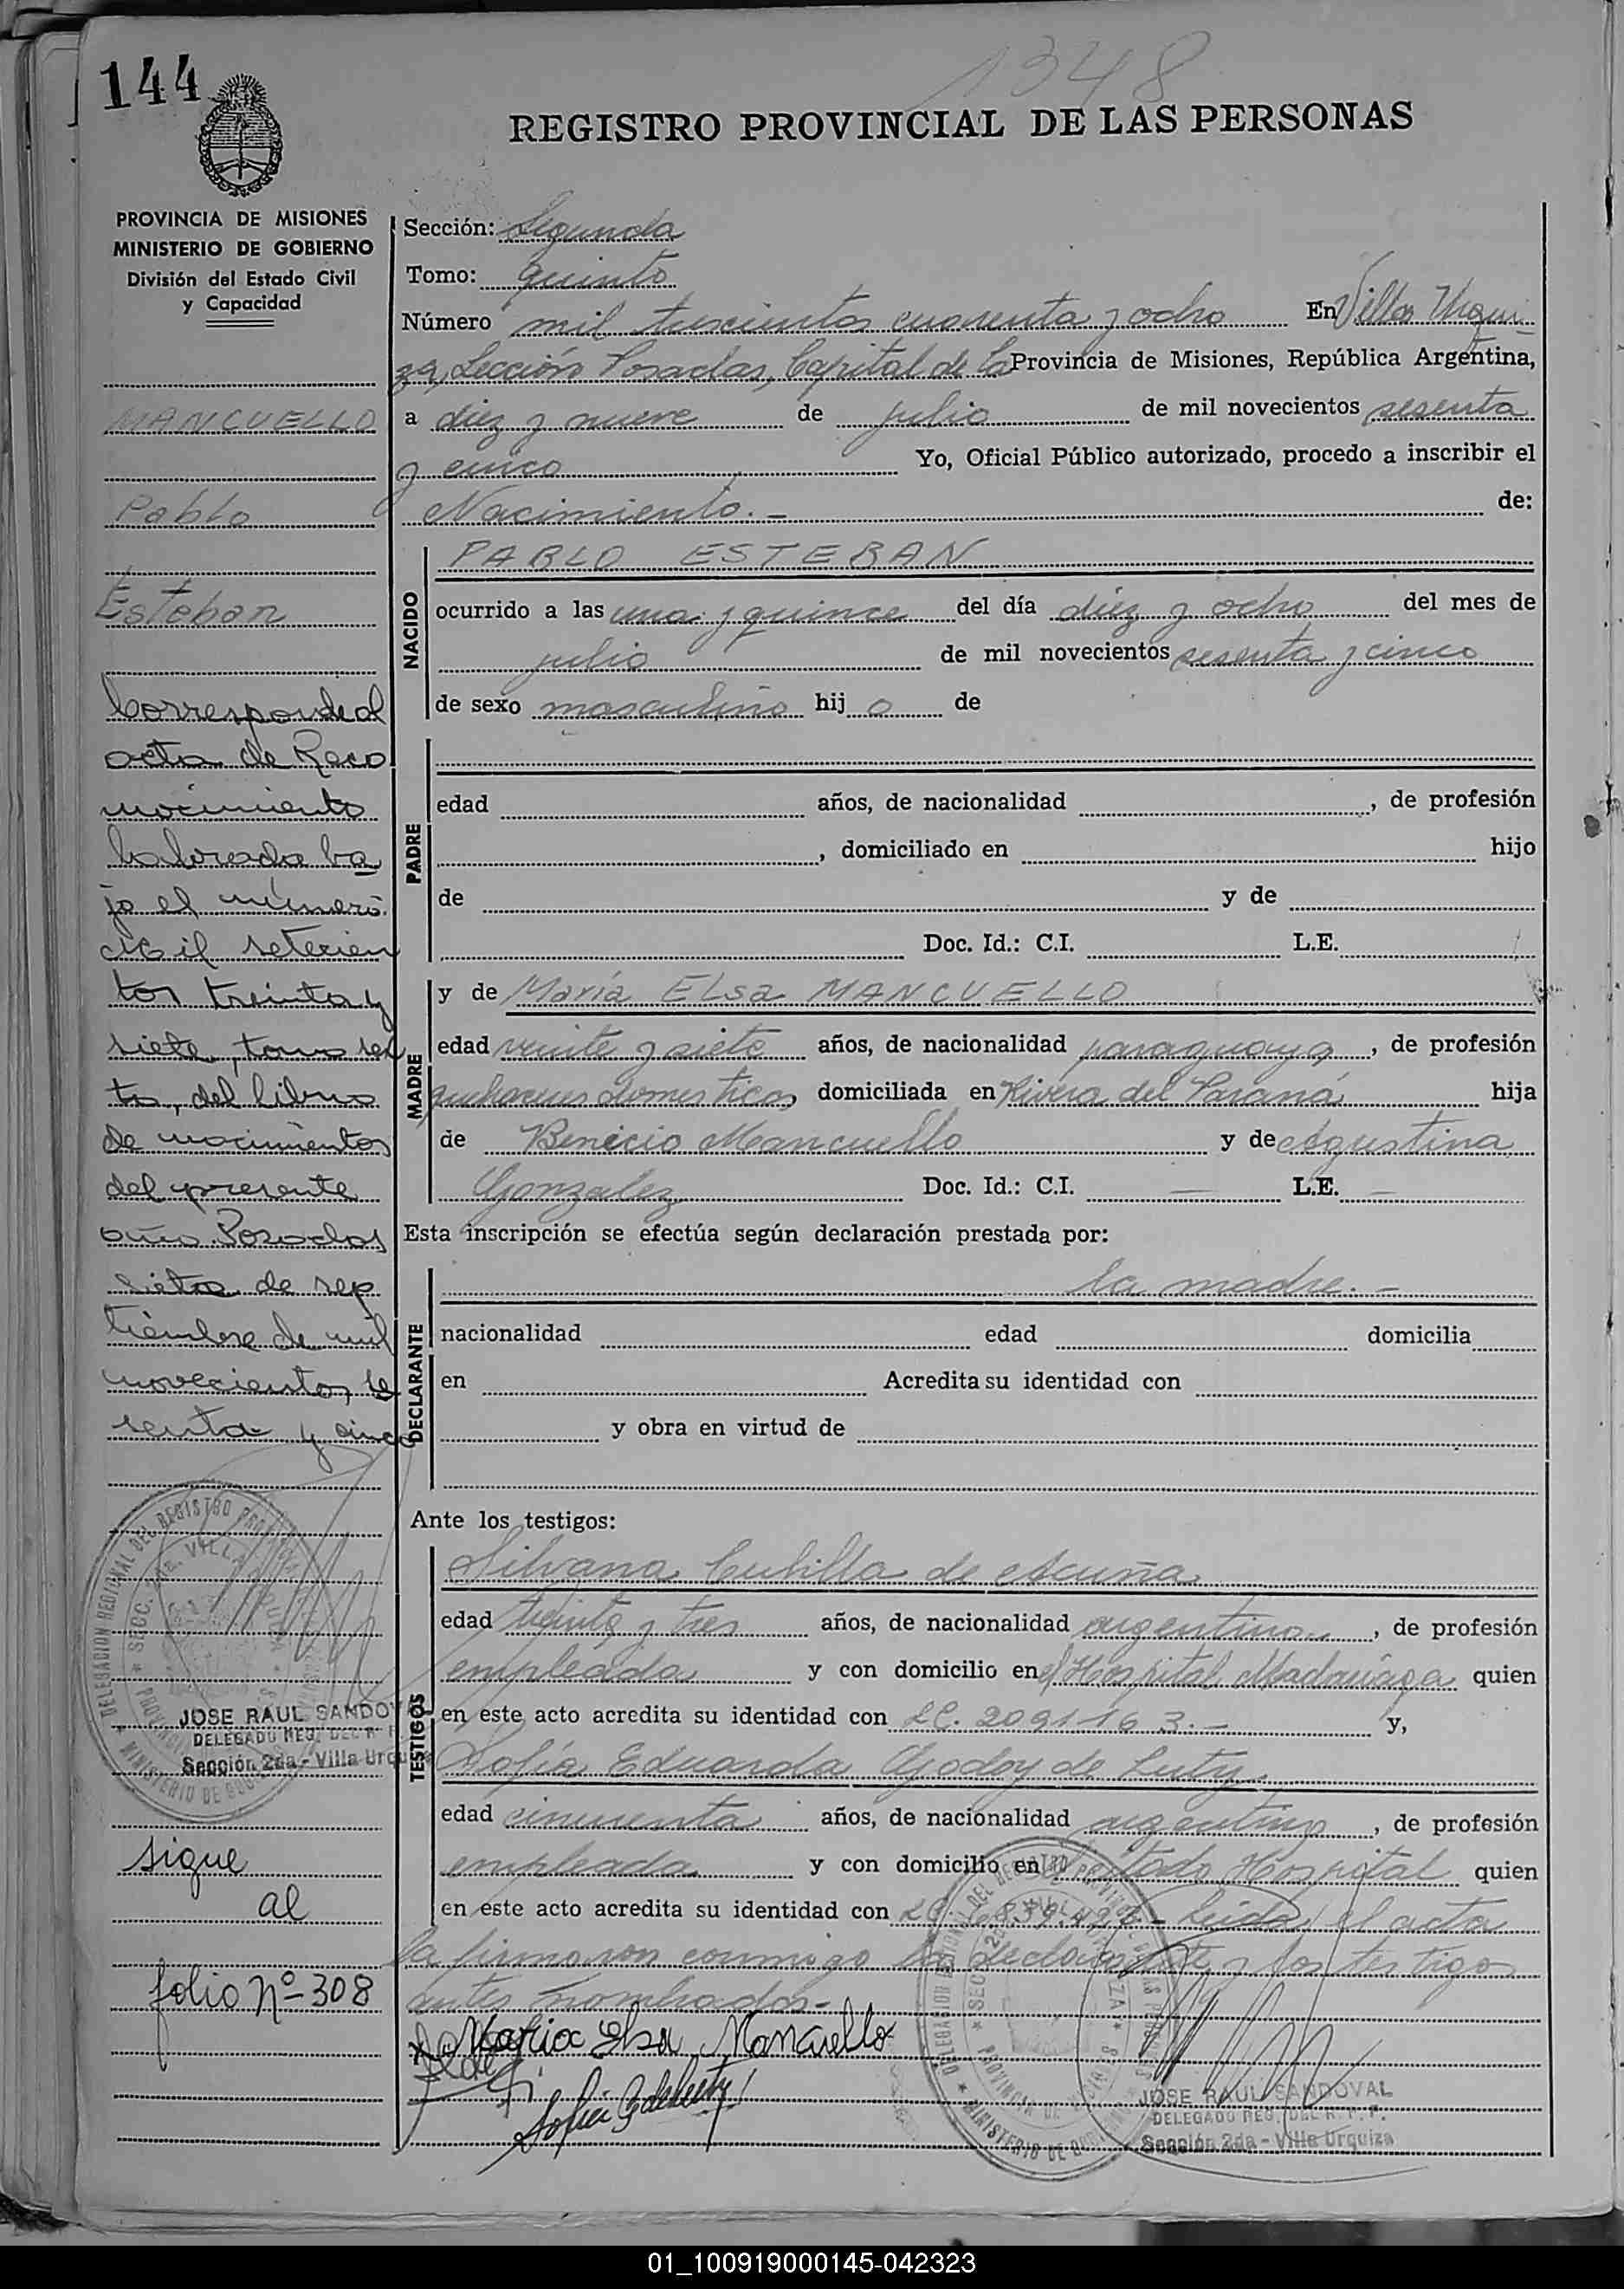 144
1348
REGISTRO PROVINCIAL DE LAS PERSONAS
PROVINCIA DE MISIONES
MINISTERIO DE GOBIERNO
División del Estado Civil
y Capacidad
MANCUELLO
Pablo
Esteban
Corresponde al
acta de Reco
nocimiento
labrada ba
jo el número
Mil setecien
tos treinta y
siete, tomo sex
to, del libro
de nacimientos
del presente
año Posadas
siete de sep
tiembre de mil
novecientos se
senta y cinco
JOSE RAUL SANDOVAL
DELEGADO REG. DEL R. P. P.
Sección 2da - Villa Urquiza
sigue
al
folio Nº 308
Sección: Segunda
Tomo: quinto
Número mil trescientos cuarenta y ocho En Villa Urqui-
za, Sección Posadas, Capital de la Provincia de Misiones, República Argentina,
a diez y nueve de julio de mil novecientos sesenta
y cinco Yo, Oficial Público autorizado, procedo a inscribir el
Nacimiento.- de:
NACIDO
PABLO ESTEBAN
ocurrido a las una y quince del día diez y ocho del mes de
julio de mil novecientos sesenta y cinco
de sexo masculino hijo de
PADRE
edad años, de nacionalidad , de profesión
, domiciliado en hijo
de y de
Doc. Id.: C.I. L.E.
MADRE
y de María Elsa MANCUELLO
edad veinte y siete años, de nacionalidad paraguaya, de profesión
quehaceres domesticos domiciliada en Rivera del Paraná hija
de Benicio Mancuello y de Agustina
Gonzalez Doc. Id.: C.I. — L.E. —
Esta inscripción se efectúa según declaración prestada por:
DECLARANTE
la madre.-
nacionalidad edad domicilia
en Acredita su identidad con
y obra en virtud de
Ante los testigos:
TESTIGOS
Silvana Cubilla de Acuña
edad treinta y tres años, de nacionalidad argentina, de profesión
empleada y con domicilio en Hospital Madariaga quien
en este acto acredita su identidad con LC. 2091163.- y,
Sofía Eduarda Godoy de Luty
edad cincuenta años, de nacionalidad argentina, de profesión
empleada y con domicilio en Hospital quien
en este acto acredita su identidad con Leida el acta
la firmaron conmigo la declarante y los testigos
antes nombrados.-
Maria Elsa Mancuello
JOSE RAUL SANDOVAL
DELEGADO REG. DEL R. P. P.
Sección 2da - Villa Urquiza
01_100919000145-042323